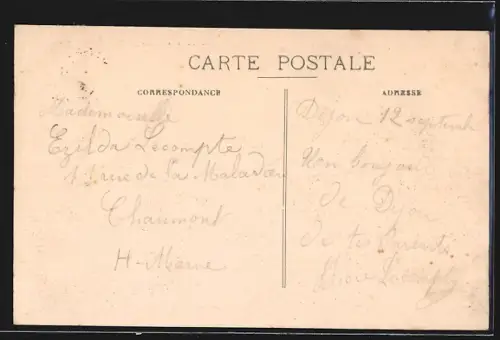 CARTE POSTALE
CORRESPONDANCE
ADRESSE
Mademoiselle
Ezilda Lecompte
rue de la Maladière
Chaumont
H-Marne
Dijon 12 septembre
Un bonjour
de Dijon
de tes parents
Lecompte